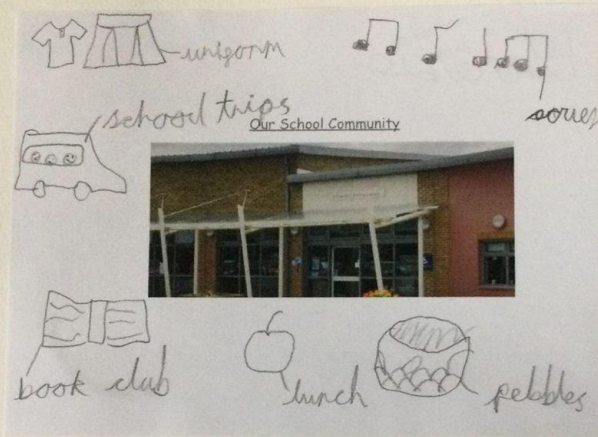 uniform
school trips
Our School Community
book club
lunch
pebbles